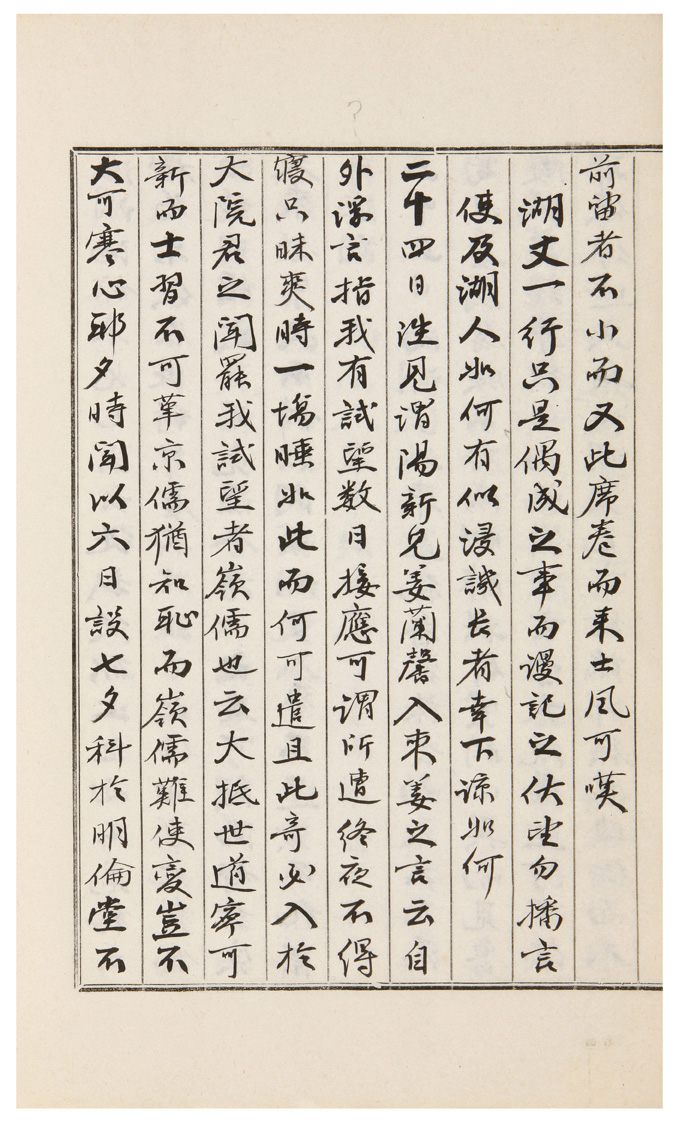 前宙者不小而又此席卷而来士風可嘆
湖丈一行只是偶成之事而謾記之伏望勿播言
使及湖人如何有似浸誠长者幸下諒如何
二十四日洼見謂陽新兒姜蘭馨入来姜之言云自
外浮言指我有試望数日接應可謂所遭終夜不得
寢只昧爽時一塲睡如此而何可遣且此奇必入於
大院君之聞罷我試望者嶺儒也云大抵世道寧可
新而士習不可革京儒猶知恥而嶺儒難使变豈不
大可寒心耶夕時聞以六日設七夕科於明倫堂不